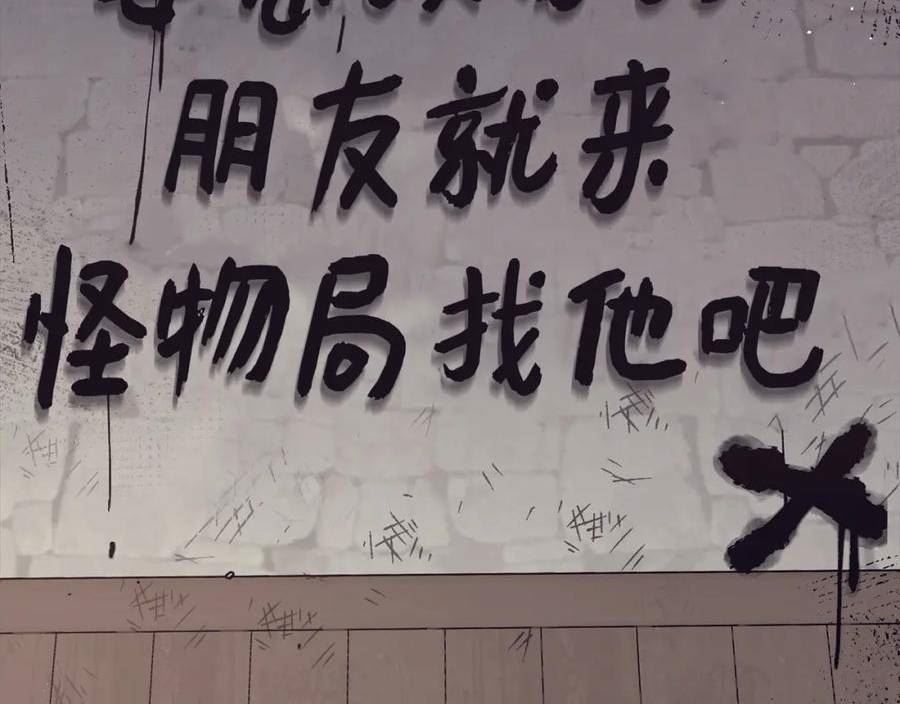 朋友就来
怪物局找他吧